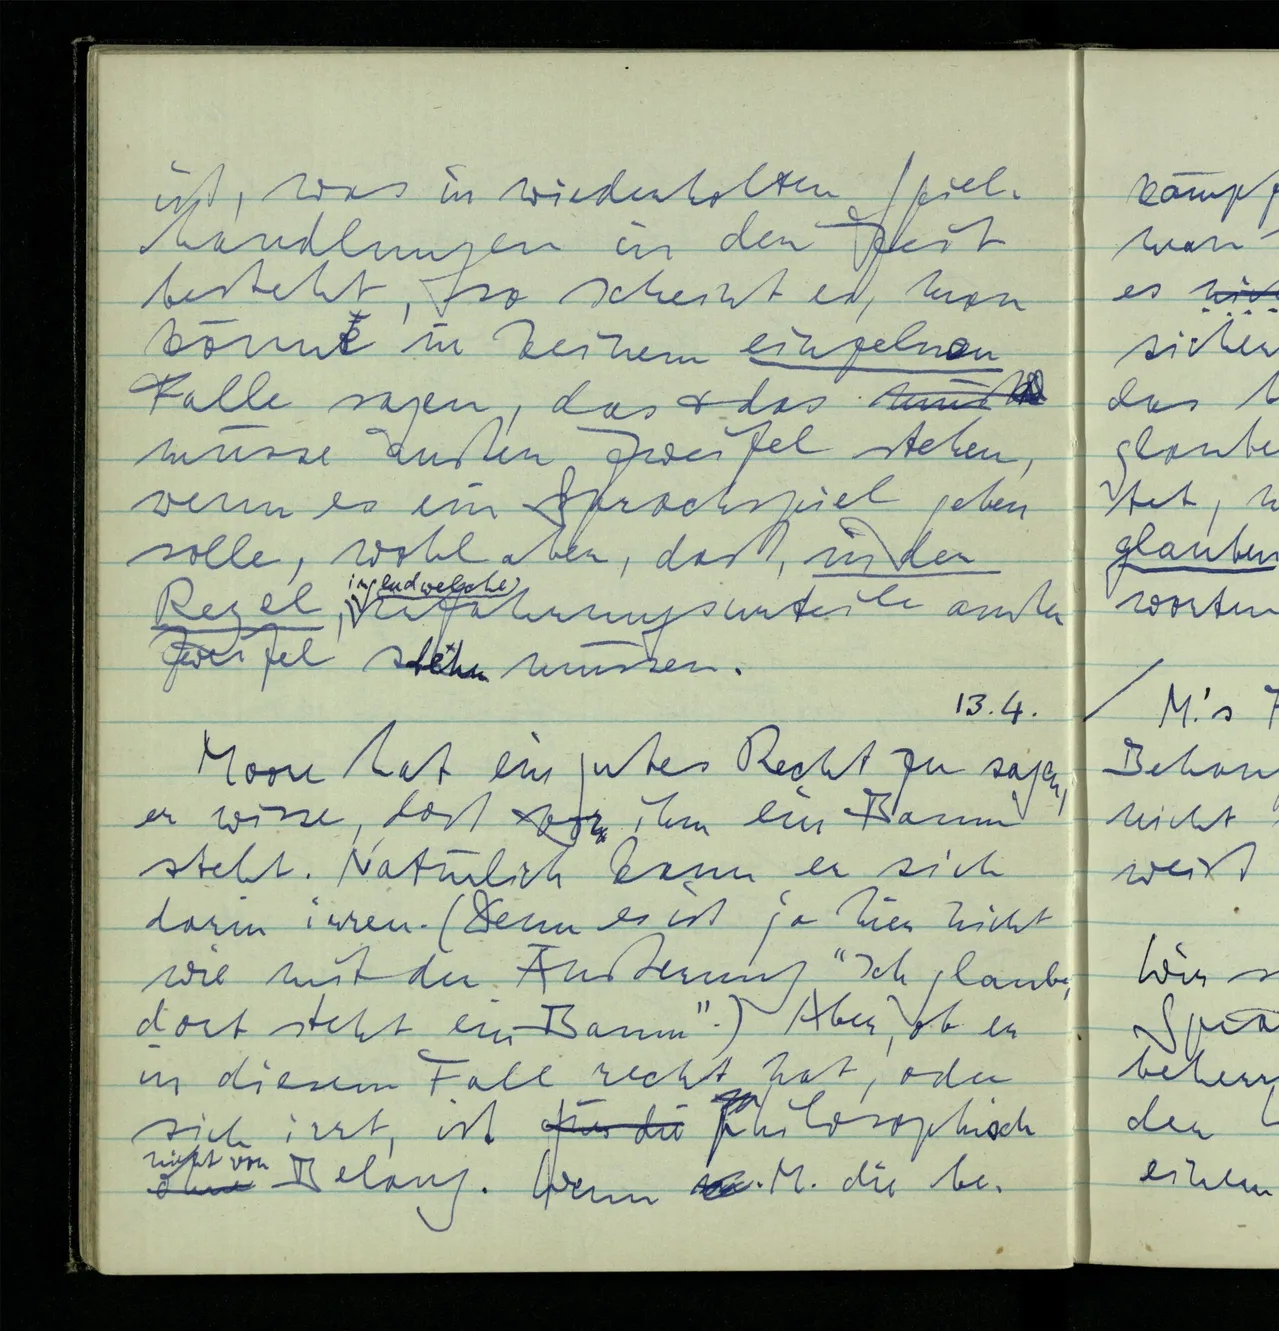 ist, was in wiederholten Spiel-
handlungen in der Zeit
besteht, so scheint es, man
könne in keinem einzelnen
Falle sagen, das & das
müsse außer Zweifel stehen,
wenn es ein Sprachspiel geben
solle, wohl aber, daß, in der
Regel, irgendwelche Erfahrungsurteile außer
Zweifel stehn müssen.
13.4.
Moore hat ein gutes Recht zu sagen,
er wisse, dort vor ihm ein Baum
steht. Natürlich kann er sich
darin irren. (Denn es ist ja hier nicht
wie mit der Äußerung "Ich glaube,
dort steht ein Baum".) Aber, ob er
in diesem Fall recht hat, oder
sich irrt, ist für die philosophisch
nicht von
ohne Belang. Wenn M. die be-
kämpf
man
es
sicher
das
glaube
tet,
glauben
worten
M.'s
Behau
nicht
weist
Wir
Sprä
beherr
den
einem